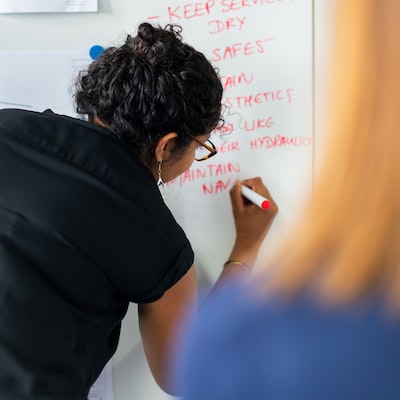 - KEEP SERVICE
DRY
SAFES-
AIN
STHETICS
LIKE
EIR HYDRAULICS
MAINTAIN
NAV